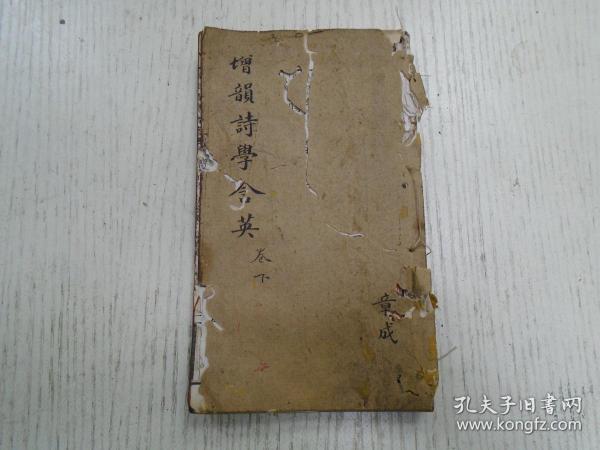 增韻詩學含英
卷下
章成
孔夫子旧书网
www.kongfz.com